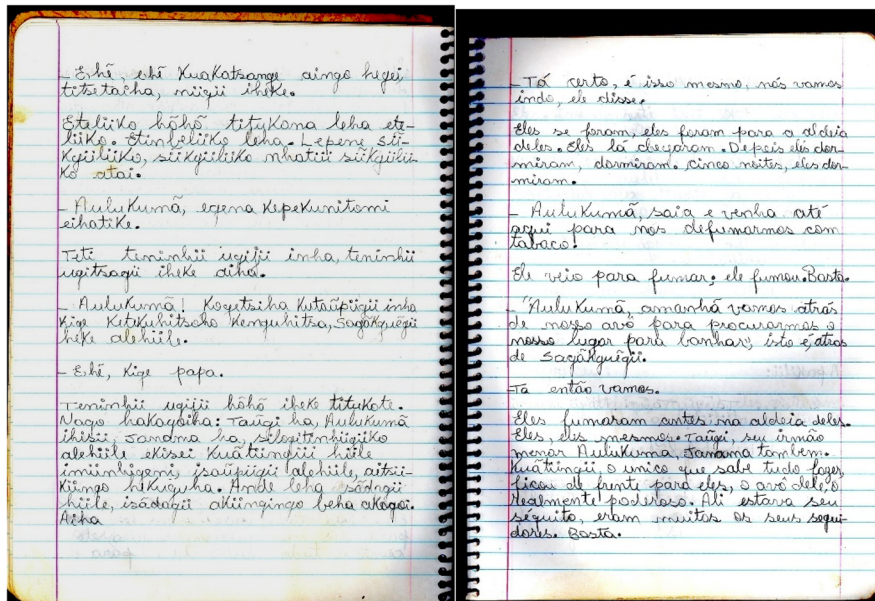 - Ehẽ, ehẽ Kuakatsange aingo hegei
titsetaiha, nügü iheke.
Etelüko höhö titükona leha ete-
lüko. Etinbelüko leha. Lepene sü-
kgülüko, sükgülüko nhatüi sükgülü-
ko atai.
- Aulukumã, egena kepekunitomi
eihatike.
Teti teninhü ugijü inha, teninhü
ugitsagü iheke aiha.
- Aulukumã! Kogetsiha kutaüpügü inha
kige ketikuhitsoho kenguhitsa, Sagãkguẽgü
heke alehüle.
- Ehẽ, kige papa.
Teninhü ugijü höhö iheke titükote.
Nago hakagoiha: Taũgi ha, Aulukumã
ihisü, Janama ha, silogitinhügüko
alehüle ekisei Kuãtüngü hüle
imünhigeni, isaüpügü alehüle, aitsü-
küingo hikuguha. Ande leha isãdagü
hüle, isãdagü aküngingo beha akagoi.
Aiha
- Tá certo, é isso mesmo, nós vamos
indo, ele disse.
Eles se foram, eles foram para a aldeia
deles. Eles lá chegaram. Depois eles dor-
miram, dormiram. cinco noites, eles dor-
miram.
- Aulukumã, saia e venha até
aqui para nos defumarmos com
tabaco!
Ele veio para fumar; ele fumou. Basta.
- "Aulukumã, amanhã vamos atrás
de nosso avô para procurarmos o
nosso lugar para banhar", isto é, atrás
de Sagãkguẽgü.
Tá então vamos.
Eles fumaram antes na aldeia deles.
Eles, eles mesmos. Taũgi, seu irmão
menor Aulukuma, Janama também.
Kuãtüngü, o unico que sabe tudo fazer,
ficou de frente para eles, o avô dele, o
realmente poderoso. Ali estava seu
séquito, eram muitos os seus segui-
dores. Basta.